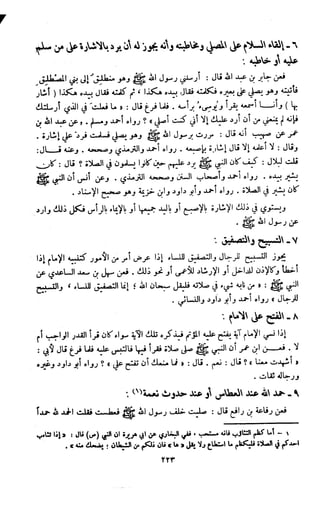 ٦ - إلقاء السلام على المصلي ومخاطبته وأنه يجوز له أن يرد بالإشارة على من سلم
عليه أو خاطبه :
فعن جابر بن عبد الله قال : أرسلني رسول الله ﷺ وهو منطلق إلى بني المصطلق
فأتيته وهو يصلي على بعيره فكلمته فقال بيده هكذا ، ثم كلمته فقال بيده هكذا ( أشار
بها ) وأنا أسمعه يقرأ ويومىء برأسه . فلما فرغ قال : « ما فعلت في الذي أرسلتك
فإنه لم يمنعني من أن أرد عليك إلا أني كنت أصلي » ؟ رواه أحمد ومسلم . وعن عبد الله بن
عمر عن صهيب أنه قال : مررت برسول الله ﷺ وهو يصلي فسلمت فرد علي إشارة .
وقال : لا أعلمه إلا قال إشارة بإصبعه . رواه أحمد والترمذي وصححه . وعنه قال :
قلت لبلال : كيف كان النبي ﷺ يرد عليهم حين كانوا يسلمون في الصلاة ؟ قال : كان
يشير بيده . رواه أحمد وأصحاب السنن وصححه الترمذي . وعن أنس أن النبي ﷺ
كان يشير في الصلاة . رواه أحمد وأبو داود وابن خزيمة وهو صحيح الإسناد .
ويستوي في ذلك الإشارة بالإصبع أو باليد جميعها أو بالإيماء بالرأس فكل ذلك وارد
عن رسول الله ﷺ .
٧ - التسبيح والتصفيق :
يجوز التسبيح للرجال والتصفيق للنساء إذا عرض أمر من الأمور كتنبيه الإمام إذا
أخطأ وكالإذن للداخل أو الإرشاد للأعمى أو نحو ذلك . فعن سهل بن سعد الساعدي عن
النبي ﷺ : « من نابه شيء في صلاته فليقل سبحان الله ؛ إنما التصفيق للنساء ، والتسبيح
للرجال » رواه أحمد وأبو داود والنسائي .
٨ - الفتح على الإمام :
إذا نسي الإمام آية يفتح عليه المؤتم فيذكره تلك الآية سواء كان قرأ القدر الواجب أم
لا . فعن ابن عمر أن النبي ﷺ صلى صلاة فقرأ فيها فالتبس عليه فلما فرغ قال لأبي :
« أشهدت معنا » ؟ قال : نعم . قال : « فما منعك أن تفتح علي » ؟ رواه أبو داود وغيره
ورجاله ثقات .
٩ - حمد الله عند العطاس أو عند حدوث نعمة(١) :
فعن رفاعة بن رافع قال : صليت خلف رسول الله ﷺ فعطست فقلت الحمد لله حمداً
١ - أما كظم التثاؤب فانه مستحب ، ففي البخاري عن ابي هريرة ان النبي (ص) قال : « إذا تثاءب
احدكم في الصلاة فليكظم ما استطاع ولا يقل « ها » فان ذلكم من الشيطان : يضحك منه » .
٢٢٣